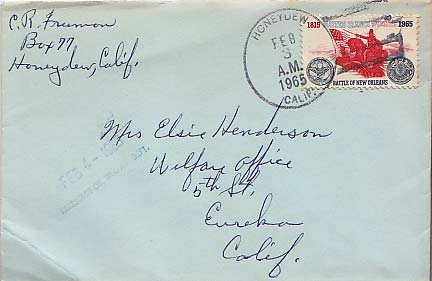 C.R. Fruman
Box 77
Honeydew, Calif.
HONEYDEW
FEB
3
A.M.
1965
CALIF.
1815
1965
BATTLE OF NEW ORLEANS
Mrs Elsie Henderson
Welfare Office
5th St.
Eureka
Calif.
FEB 4 - 19